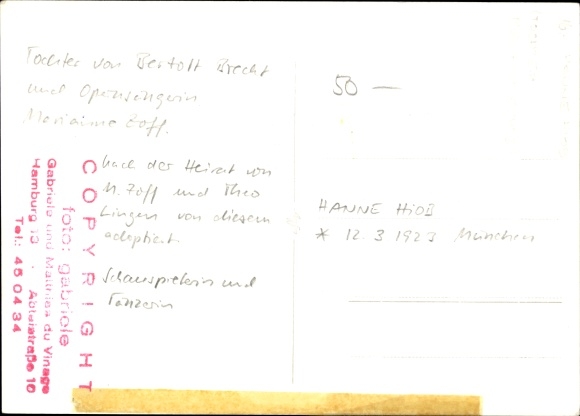 Tochter von Bertolt Brecht
und Opernsängerin
Marianne Zoff.
nach der Heirat von
M. Zoff und Theo
Lingen von diesem
adoptiert
Schauspielerin und
Tänzerin
50 —
HANNE HIOB
* 12.3 1923 München
COPYRIGHT
foto: gabriele
Gabriele und Mathias du Vinage
Hamburg 13 · Abteistraße 10
Tel.: 45 04 34